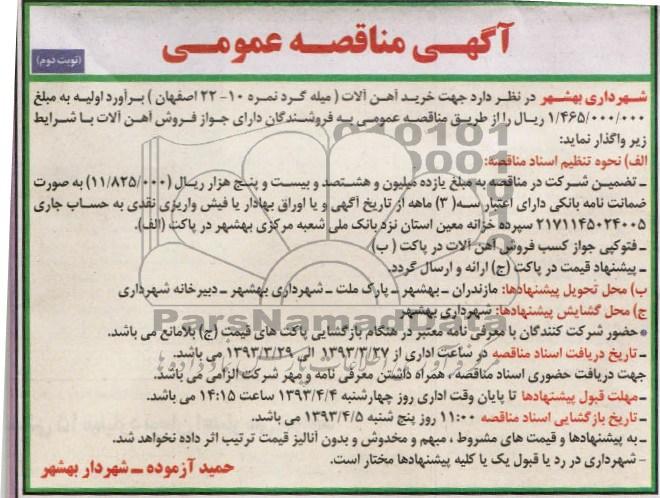 آگهی مناقصه عمومی
(نوبت دوم)
شهرداری بهشهر در نظر دارد جهت خرید آهن آلات ( میله گرد نمره ۱۰- ۲۲ اصفهان ) برآورد اولیه به مبلغ
۱/۴۶۵/۰۰۰/۰۰۰ ریال را از طریق مناقصه عمومی به فروشندگان دارای جواز فروش آهن آلات با شرایط
زیر واگذار نماید:
الف) نحوه تنظیم اسناد مناقصه:
ـ تضمین شرکت در مناقصه به مبلغ یازده میلیون و هشتصد و بیست و پنج هزار ریال (۱۱/۸۲۵/۰۰۰) به صورت
ضمانت نامه بانکی دارای اعتبار سه( ۳) ماهه از تاریخ آگهی و یا اوراق بهادار یا فیش واریزی نقدی به حساب جاری
۲۱۷۱۱۴۵۰۲۴۰۰۵ سپرده خزانه معین استان نزد بانک ملی شعبه مرکزی بهشهر در پاکت (الف).
ـ فتوکپی جواز کسب فروش آهن آلات در پاکت ( ب)
ـ پیشنهاد قیمت در پاکت (ج) ارائه و ارسال گردد.
ب) محل تحویل پیشنهادها: مازندران ـ بهشهر ـ پارک ملت ـ شهرداری بهشهر ـ دبیرخانه شهرداری
ج) محل گشایش پیشنهادها: شهرداری بهشهر
ParsNamadData
• حضور شرکت کنندگان با معرفی نامه معتبر در هنگام بازگشایی پاکت های قیمت (ج) بلامانع می باشد.
ـ تاریخ دریافت اسناد مناقصه در ساعات اداری از ۱۳۹۳/۳/۲۷ الی ۱۳۹۳/۳/۲۹ می باشد.
جهت دریافت حضوری اسناد مناقصه ، همراه داشتن معرفی نامه و مهر شرکت الزامی می باشد.
ـ مهلت قبول پیشنهادها تا پایان وقت اداری روز چهارشنبه ۱۳۹۳/۴/۴ ساعت ۱۴:۱۵ می باشد.
ـ تاریخ بازگشایی اسناد مناقصه ۱۱:۰۰ روز پنج شنبه ۱۳۹۳/۴/۵ می باشد.
ـ به پیشنهادها و قیمت های مشروط ، مبهم و مخدوش و بدون آنالیز قیمت ترتیب اثر داده نخواهد شد.
- شهرداری در رد یا قبول یک یا کلیه پیشنهادها مختار است.
حمید آزموده ــ شهردار بهشهر